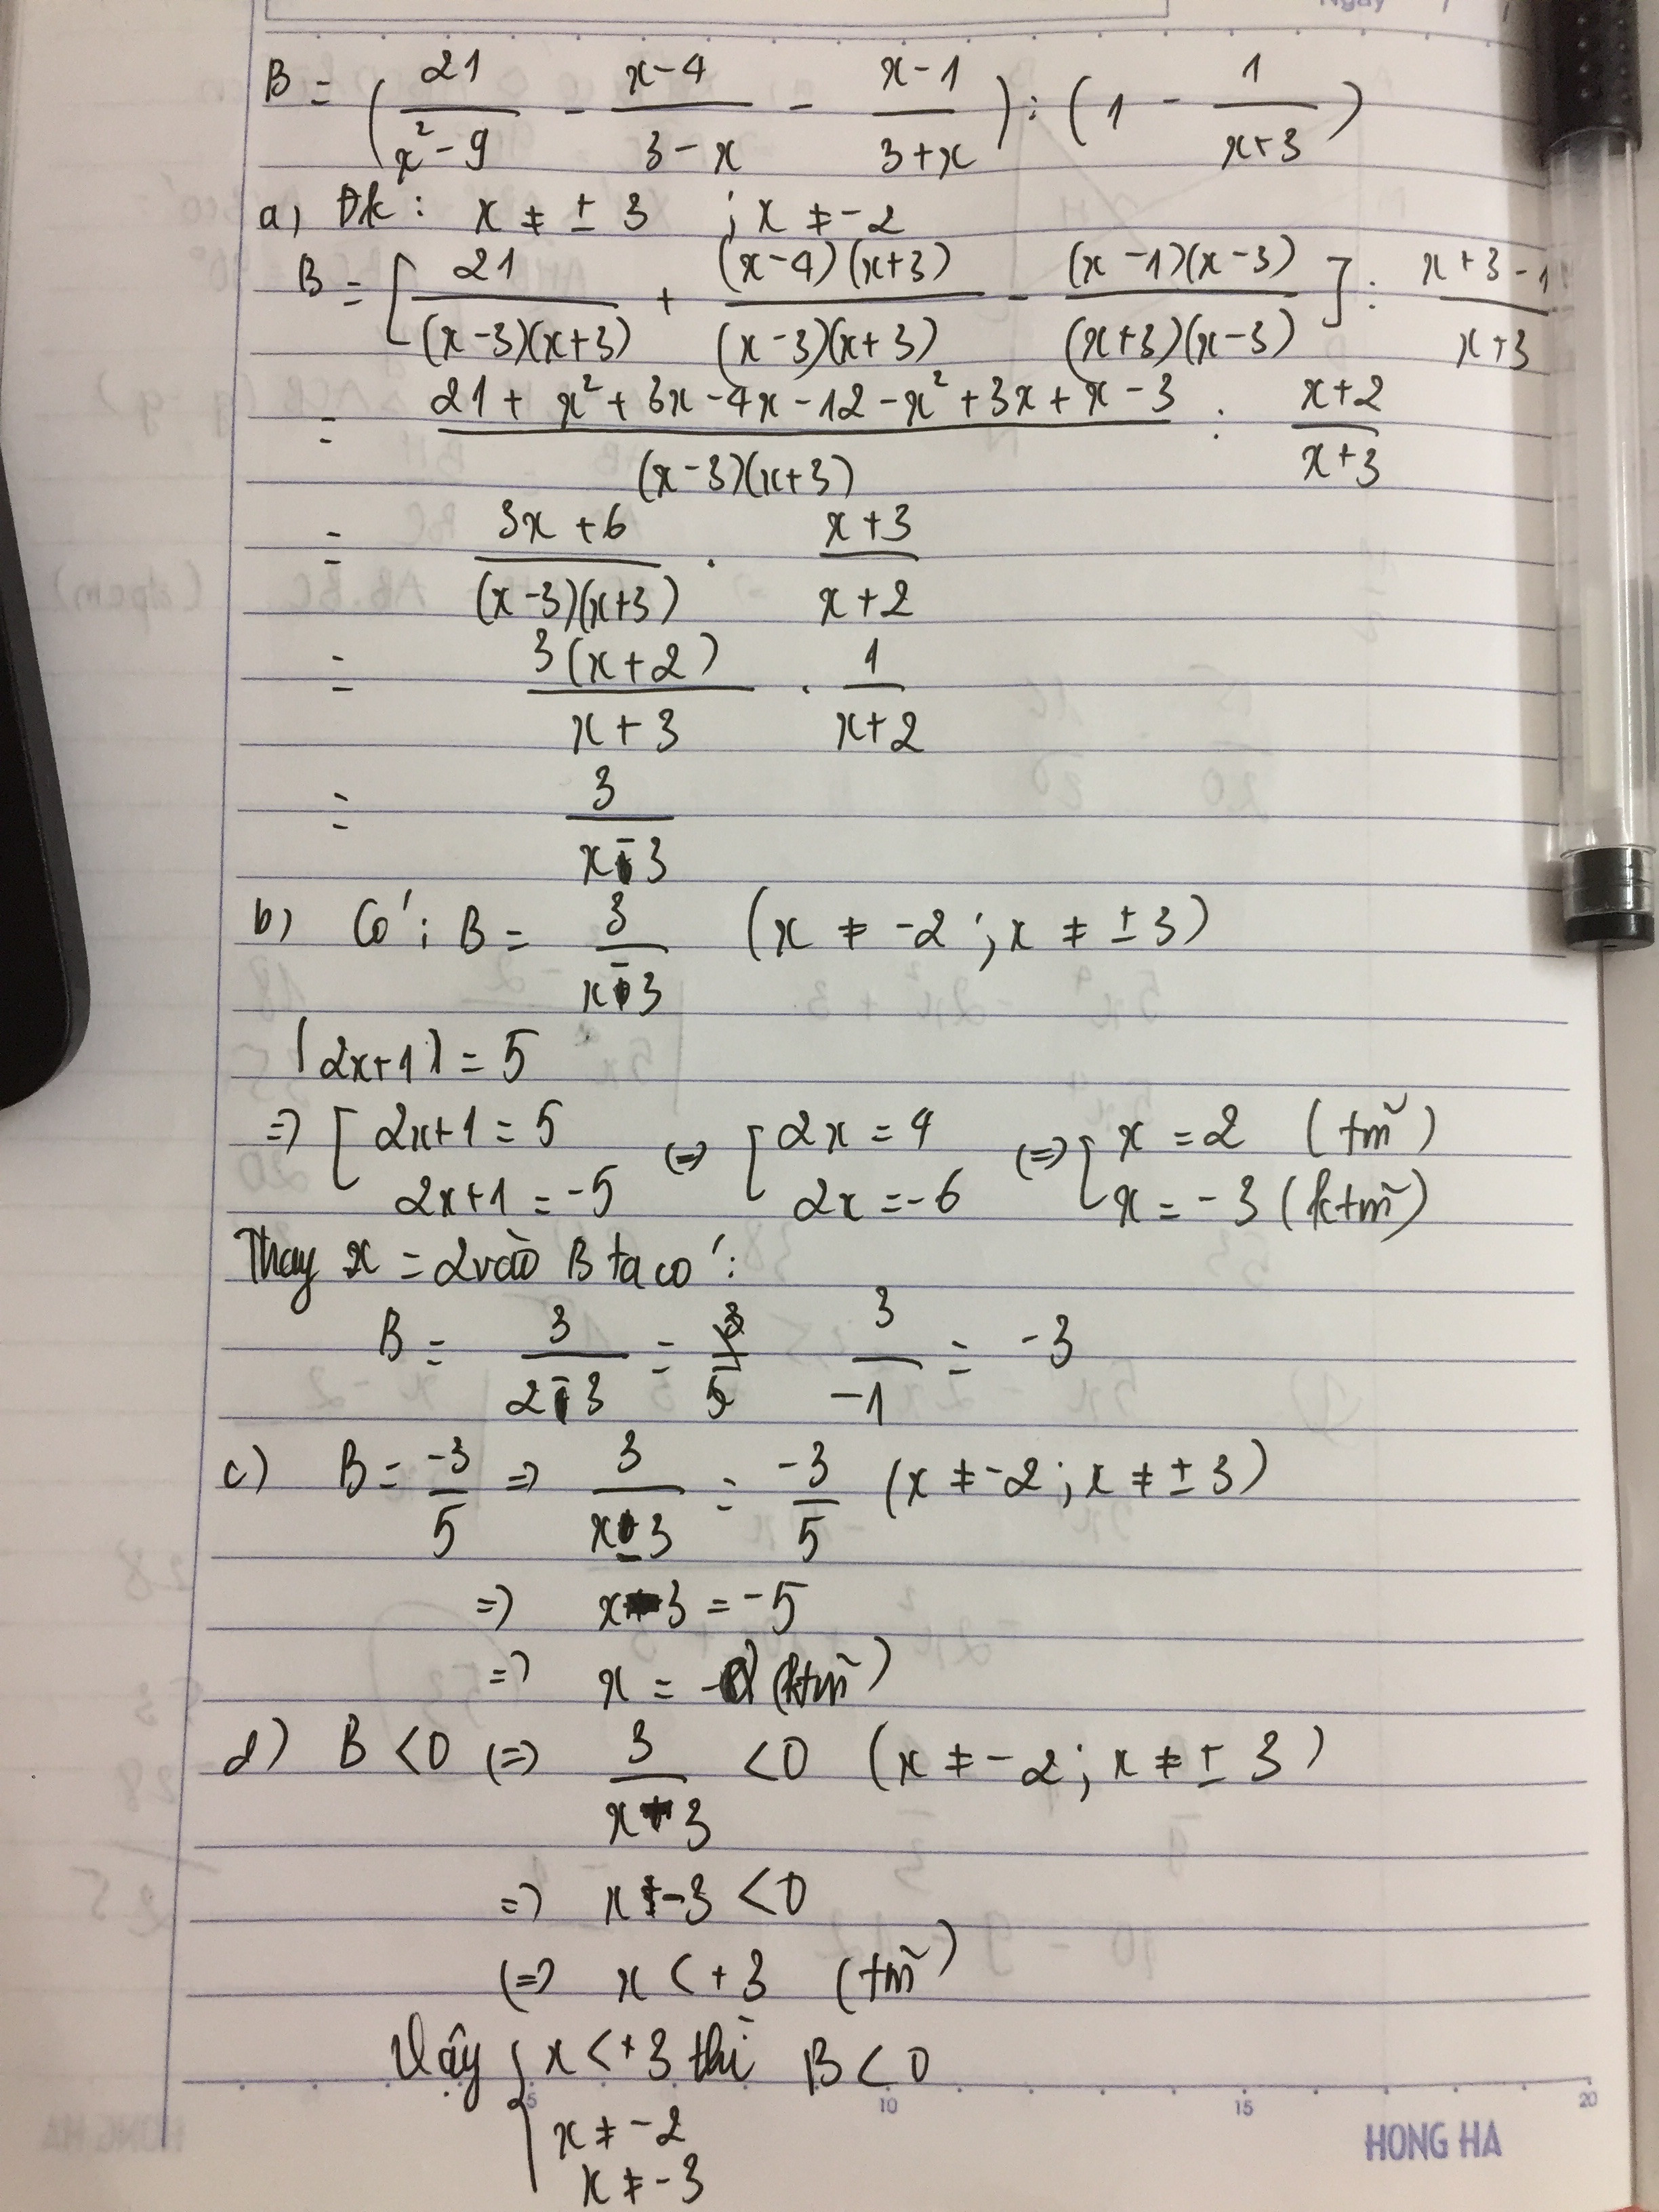 Ngày
B = ( 21/(x² - 9) - (x-4)/(3-x) - (x-1)/(3+x) ) : ( 1 - 1/(x+3) )
a) Đk: x ≠ ± 3 ; x ≠ -2
B = [ 21/((x-3)(x+3)) + ((x-4)(x+3))/((x-3)(x+3)) - ((x-1)(x-3))/((x+3)(x-3)) ] : (x+3-1)/(x+3)
= (21 + x² + 3x - 4x - 12 - x² + 3x + x - 3)/((x-3)(x+3)) : (x+2)/(x+3)
= (3x+6)/((x-3)(x+3)) . (x+3)/(x+2)
= 3(x+2)/(x+3) . 1/(x+2)
= 3/(x-3)
b) Có: B = 3/(x-3) (x ≠ -2 ; x ≠ ± 3)
|2x+1| = 5
=> [ 2x+1 = 5 <=> [ 2x = 4 <=> [ x = 2 (tm~)
2x+1 = -5 2x = -6 x = -3 (ktm~)
Thay x = 2 vào B ta có:
B = 3/(2-3) = 3/(-1) = -3
c) B = -3/5 => 3/(x-3) = -3/5 (x ≠ -2 ; x ≠ ± 3)
=> x-3 = -5
=> x = -2 (ktm~)
d) B < 0 <=> 3/(x-3) < 0 (x ≠ -2 ; x ≠ ± 3)
=> x-3 < 0
<=> x < +3 (tm~)
Vậy { x < +3 thì B < 0
x ≠ -2
x ≠ -3
5 10 15 20
HONG HA